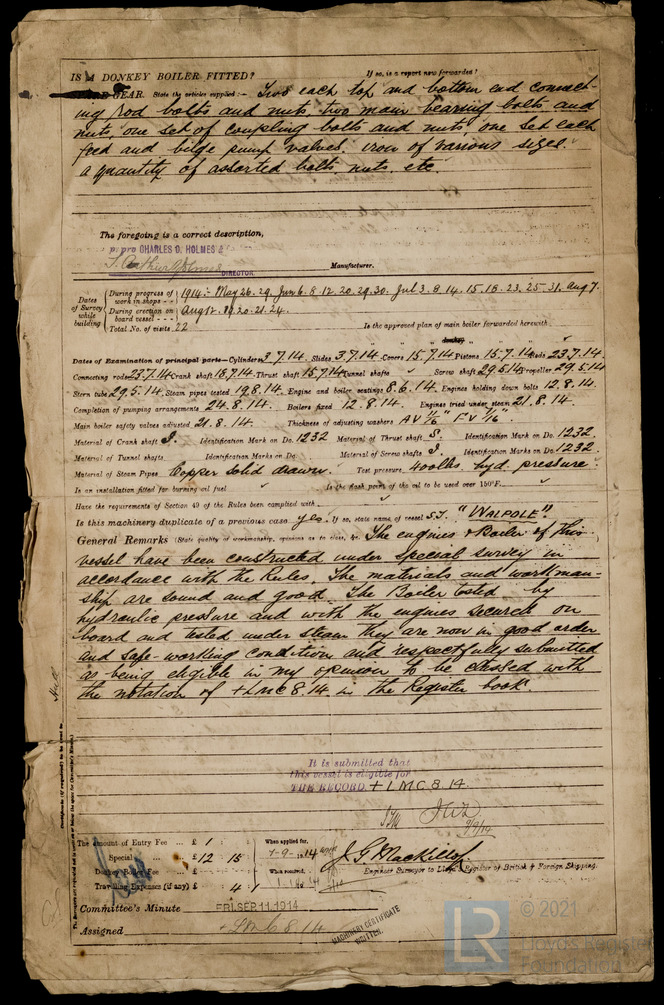 IS A DONKEY BOILER FITTED? If so, is a report now forwarded?
GEAR. State the articles supplied:- Two each top and bottom end connect-
ing rod bolts and nuts, two main bearing bolts and
nuts, one set of coupling bolts and nuts, one set each
feed and bilge pump valves, iron of various sizes.
a quantity of assorted bolts nuts. etc.
The foregoing is a correct description,
p. pro CHARLES D. HOLMES &
DIRECTOR Manufacturer.
Dates of Survey while building
During progress of work in shops - - 1914:- May 26. 29. Jun 6. 8. 12. 20. 29. 30. Jul 3. 8. 14. 15. 18. 23. 25. 31. Aug 7.
During erection on board vessel - - - Aug 12. 20. 21. 24.
Total No. of visits 22 Is the approved plan of main boiler forwarded herewith
Dates of Examination of principal parts—Cylinders 3.7.14. Slides 3.7.14. Covers 15.7.14 Pistons 15.7.14 Rods 23.7.14.
Connecting rods 23.7.14 Crank shaft 18.7.14 Thrust shaft 15.7.14 Tunnel shafts Screw shaft 29.5.14 Propeller 29.5.14
Stern tube 29.5.14. Steam pipes tested 19.8.14. Engine and boiler seatings 8.6.14. Engines holding down bolts 12.8.14.
Completion of pumping arrangements 24.8.14. Boilers fixed 12.8.14. Engines tried under steam 21.8.14.
Main boiler safety valves adjusted 21.8.14. Thickness of adjusting washers
Material of Crank shaft Identification Mark on Do. 1232 Material of Thrust shaft S. Identification Mark on Do. 1232.
Material of Tunnel shafts Identification Marks on Do. Material of Screw shafts Identification Marks on Do. 1232.
Material of Steam Pipes Copper solid drawn. Test pressure 400 lbs. hyd. pressure
Is an installation fitted for burning oil fuel Is the flash point of the oil to be used over 150°F.
Have the requirements of Section 49 of the Rules been complied with
Is this machinery duplicate of a previous case yes. If so, state name of vessel S.T. "WALPOLE".
General Remarks (State quality of workmanship, opinions as to class, &c. The engines & Boiler of this
vessel have been constructed under special survey in
accordance with the Rules. The materials and workman-
ship are sound and good. The Boiler tested by
hydraulic pressure and with the engines secured on
board and tested under steam they are now in good order
and safe working condition and respectfully submitted
as being eligible in my opinion to be classed with
the notation of +LMC 8.14. in the Register book.
It is submitted that
this vessel is eligible for
THE RECORD + LMC 8.14.
9/9/14
The amount of Entry Fee ... £ 1 : When applied for,
Special ... £ 12 : 15 1-9-1914
Donkey Boiler Fee ... £ When received,
Travelling Expenses (if any) £ 4 : 1
J. G. Mackillop
Engineer Surveyor to Lloyd's Register of British & Foreign Shipping.
Committee's Minute FRI. SEP. 11. 1914
Assigned + LMC 8.14
MACHINERY CERTIFICATE
WRITTEN.
LR © 2021
Lloyd's Register
Foundation